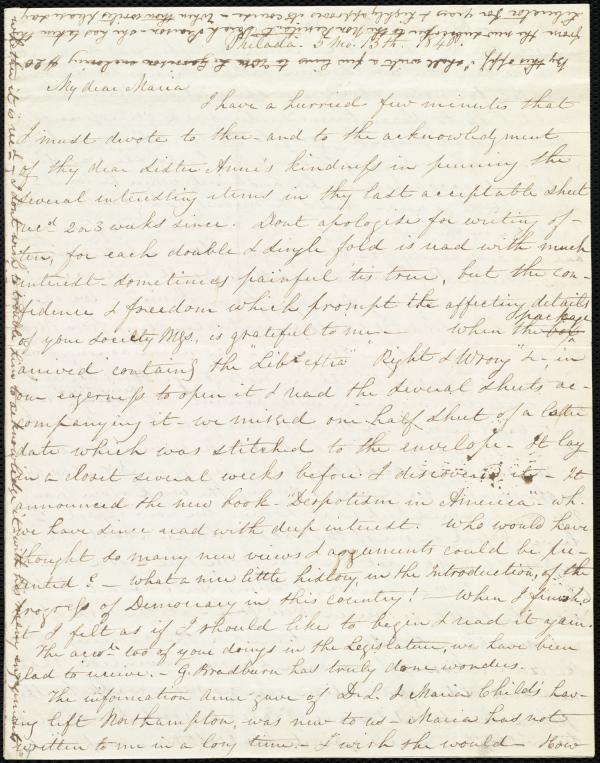 Philada. 5 mo. 13th. 1840
My dear Maria
I have a hurried few minutes that
I must devote to thee - and to the acknowledgment
of thy dear sister Anne's kindness in penning the
several interesting items in thy last acceptable sheet
recd. 2 or 3 weeks since. Dont apologise for writing of-
ten, for each double & single fold is read with much
interest - sometimes painful 'tis true, but the con-
fidence & freedom which prompt the affecting details
of your society Mgs. is grateful to me - When the box package
arrived containg the "Libr. extra" "Right & Wrong" &- in
our eagerness to open it & read the several sheets ac-
companying it - we missed one half sheet of a later
date which was stitched to the envelope - It lay
in a closet several weeks before I discovered it - It
announced the new book - "Despotism in America" - wh.
we have since read with deep interest. Who would have
thought so many new views & arguments could be pre-
sented? - what a nice little history, in the Introduction, of the
progress of Democracy in this country! - When I finished
it I felt as if I should like to begin & read it again.
The accots. too of your doings in the Legislature, we have been
glad to receive. - G. Bradburn has truly done wonders.
The information Anne gave of D. L. & Maria Child's hav-
ing left Northampton, was new to us - Maria has not
written to me in a long time - I wish she would - How